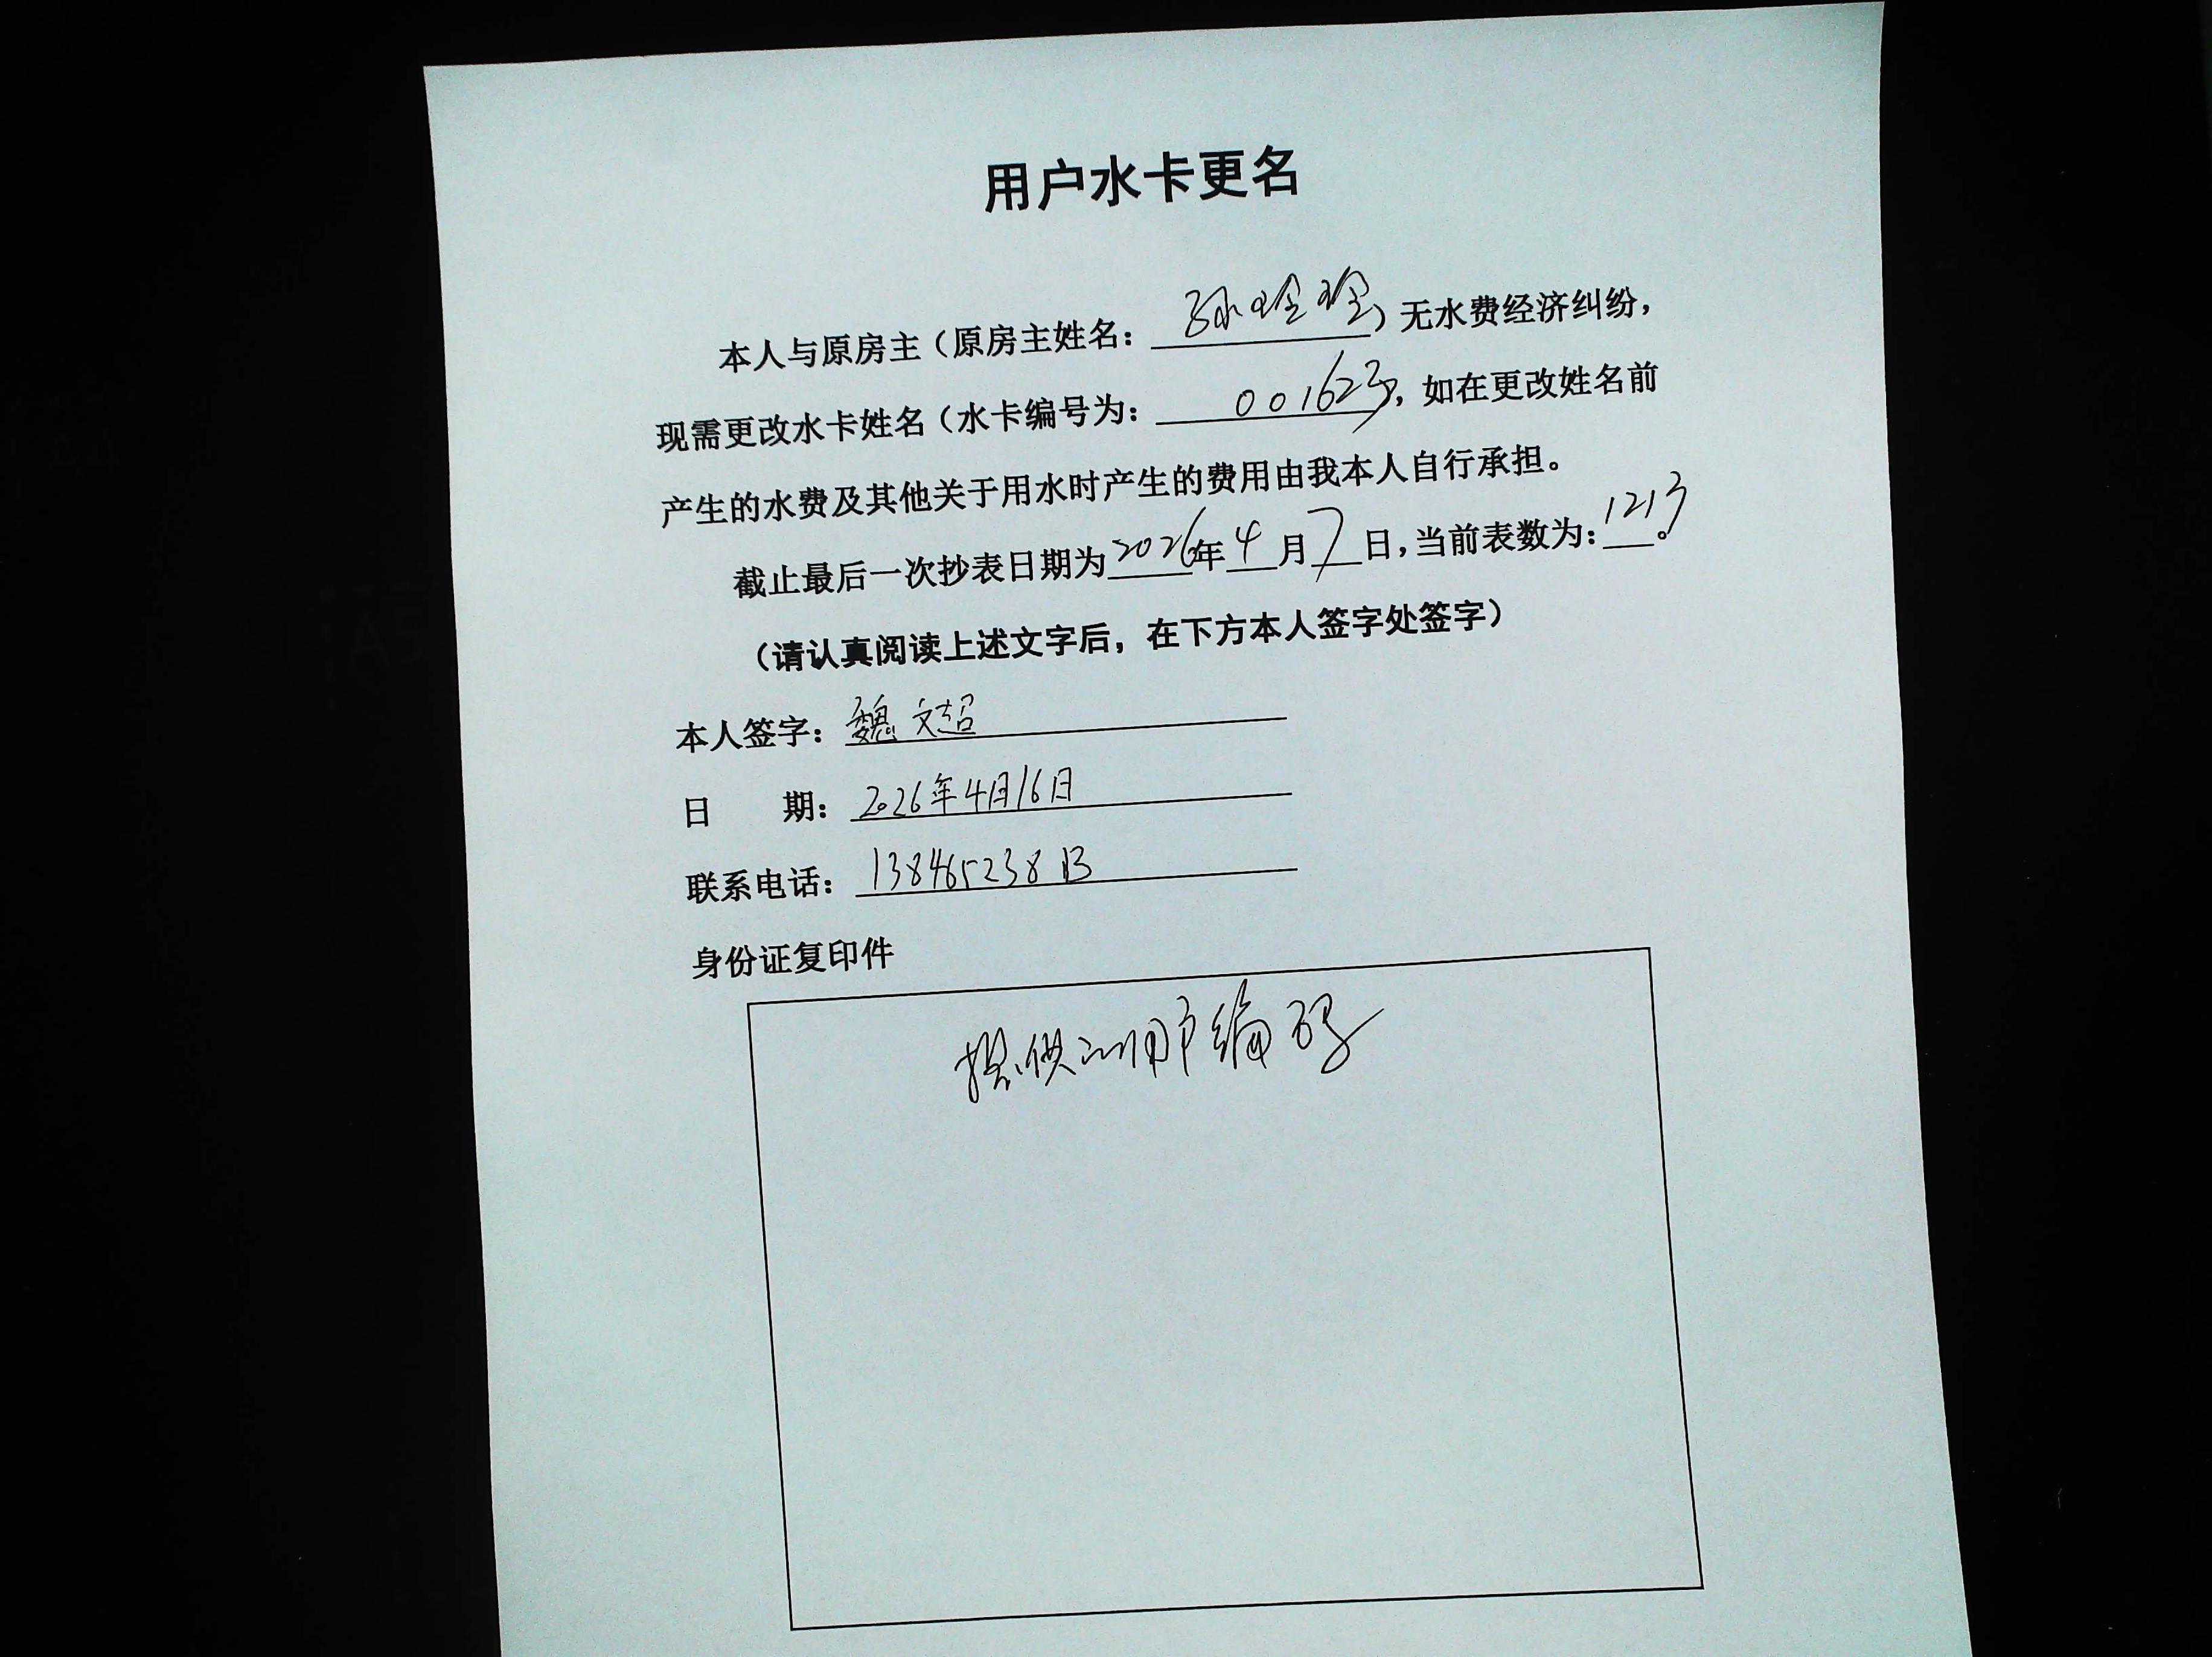 用户水卡更名
本人与原房主（原房主姓名：孙玲玲）无水费经济纠纷，
现需更改水卡姓名（水卡编号为：001623），如在更改姓名前
产生的水费及其他关于用水时产生的费用由我本人自行承担。
截止最后一次抄表日期为2026年4月7日，当前表数为：1213。
（请认真阅读上述文字后，在下方本人签字处签字）
本人签字：魏文超
日 期：2026年4月16日
联系电话：13846523813
身份证复印件
提供 用户编码